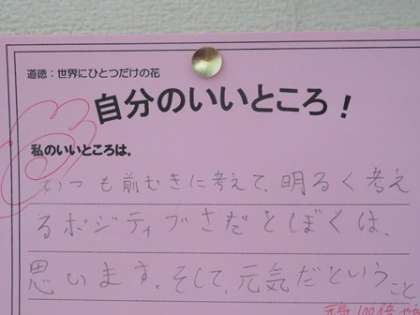 道徳:世界にひとつだけの花
自分のいいところ!
私のいいところは、
いつも前むきに考えて、明るく考え
るポジティブさだとぼくは、
思います。そして、元気だということ
元気100倍